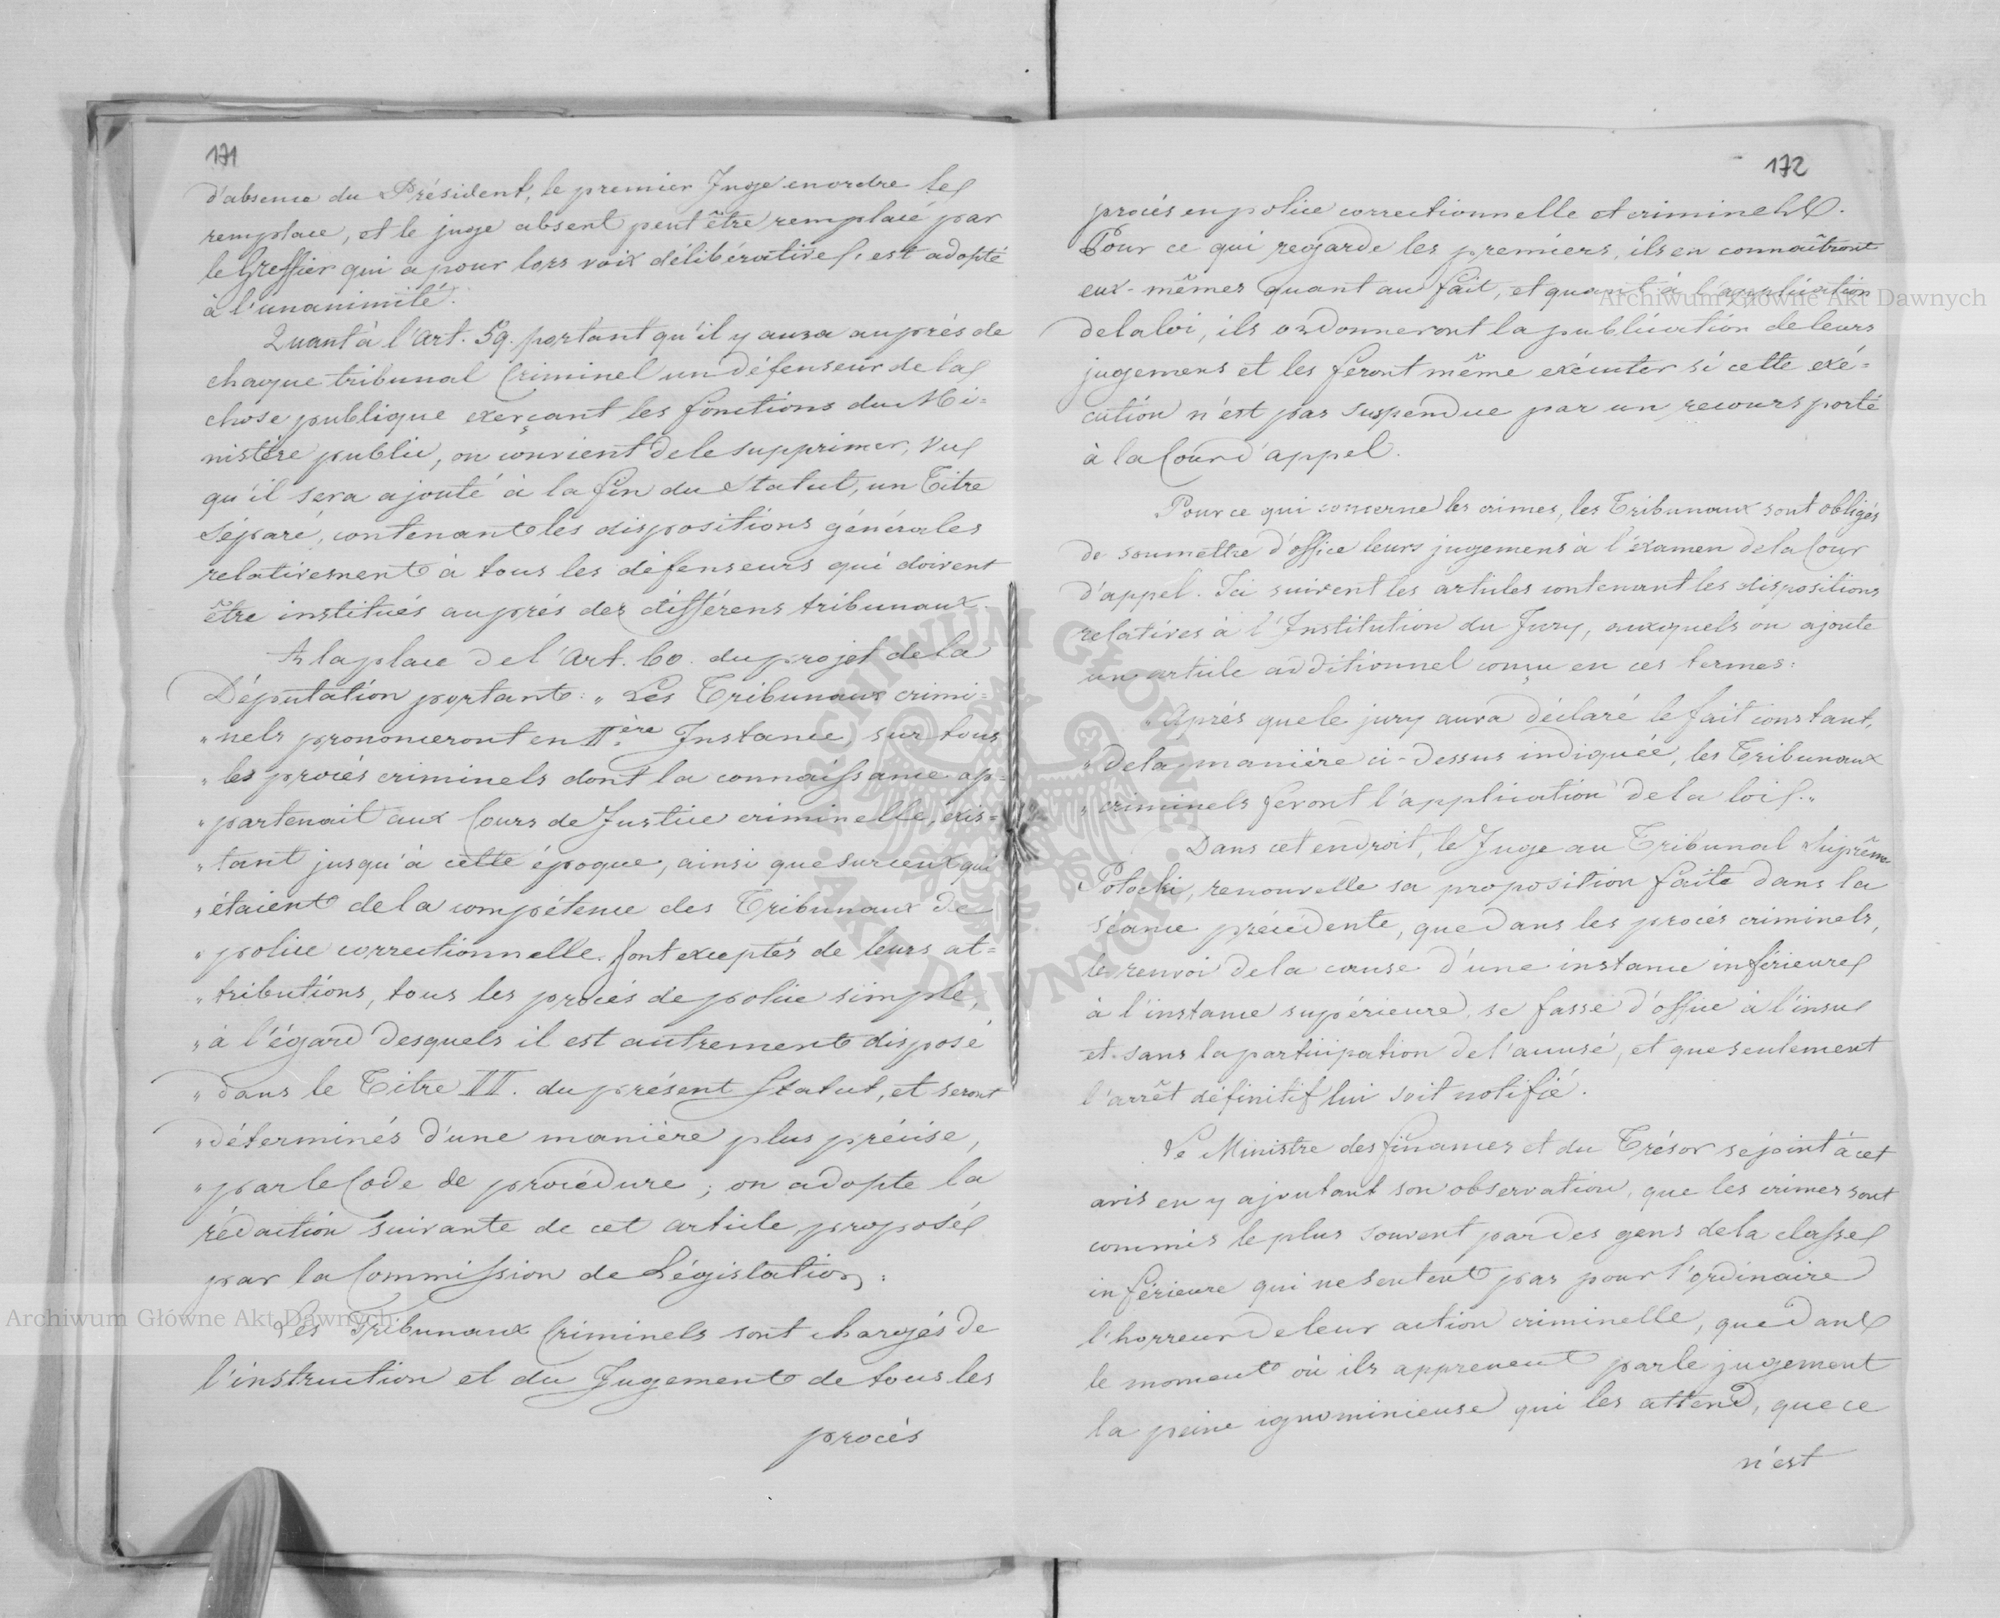 171
d'absence du Président, le premier Juge en ordre le
remplace, et le juge absent peut être remplacé par
le Greffier qui a pour lors voix délibérative, est adopté
à l'unanimité.
Quant à l'Art. 59. portant qu'il y aura auprès de
chaque tribunal Criminel un défenseur de la
chose publique exerçant les fonctions du Mi=
nistère public, on convient de le supprimer, vu
qu'il sera ajouté à la fin du Statut, un Titre
séparé, contenant les dispositions générales
relativement à tous les défenseurs qui doivent
être institués auprès des différens tribunaux.
A la place de l'Art. 60. du projet de la
Députation portant: „ Les Tribunaux crimi=
„ nels prononceront en IIère Instance, sur tous
„ les procès criminels dont la connaissance ap=
„ partenait aux Cours de Justice criminelle, exis=
„ tant jusqu'à cette époque, ainsi que sur ceux qui
„ étaient de la compétence des Tribunaux de
„ police correctionnelle. Sont exceptés de leurs at=
„ tributions, tous les procès de police simple,
„ à l'égard desquels il est autrement disposé
„ dans le Titre II. du présent Statut, et seront
„ déterminés d'une manière plus précise,
„ par le Code de procédure; on adopte la
rédaction suivante de cet article, proposé
par la Commission de Législation:
Les Tribunaux Criminels sont chargés de
l'instruction et du Jugement de tous les
procès
172
procès en police correctionnelle et criminels.
Pour ce qui regarde les premiers, ils en connaîtront
eux-mêmes quant au fait, et quant à l'application
de la loi, ils ordonneront la publication de leurs
jugemens et les feront même exécuter si cette exé=
cution n'est pas suspendue par un recours porté
à la Cour d'appel.
Pour ce qui concerne les crimes, les Tribunaux sont obligés
de soumettre d'office leurs jugemens à l'examen de la Cour
d'appel. Ici suivent les articles contenant les dispositions
relatives à l'Institution du Jury, auxquels on ajoute
un article additionnel conçu en ces termes:
„ Après que le jury aura déclaré le fait constant,
„ de la manière ci-dessus indiquée, les Tribunaux
„ criminels feront l'application de la loi.„
Dans cet endroit, le Juge au Tribunal Suprême
Potocki, renouvelle sa proposition faite dans la
séance précédente, que dans les procès criminels,
le renvoi de la cause d'une instance inférieure
à l'instance supérieure, se fasse d'office à l'insu
et sans la participation de l'accusé, et que seulement
l'arrêt définitif lui soit notifié.
Le Ministre des finances et du Trésor se joint à cet
avis en y ajoutant son observation, que les crimes sont
commis le plus souvent par des gens de la classe
inférieure qui ne sentent pas pour l'ordinaire
l'horreur de leur action criminelle, que dans
le moment où ils apprenent par le jugement
la peine ignominieuse qui les attend, que ce
n'est
Archiwum Główne Akt Dawnych
Archiwum Główne Akt Dawnych
ARCHIWUM GŁÓWNE AKT DAWNYCH